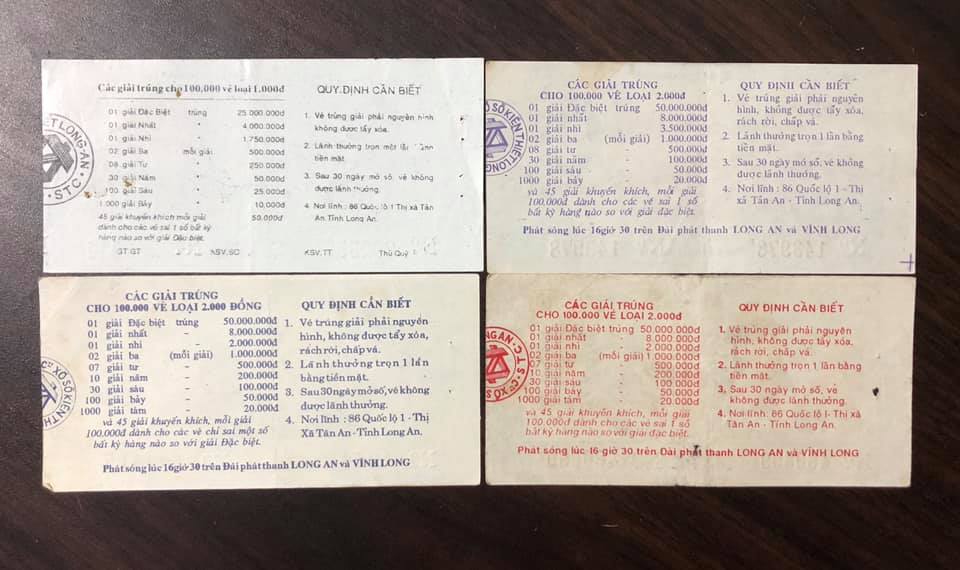 Các giải trúng cho 100,000 vé loại 1.000đ
01 giải Đặc Biệt trúng 25.000.000đ
01 giải Nhất " 4.000.000đ
01 giải Nhì " 1.750.000đ
02 giải Ba mỗi giải 500.000đ
08 giải Tư " 250.000đ
30 giải Năm " 50.000đ
100 giải Sáu " 25.000đ
1.000 giải Bảy " 10,000đ
45 giải khuyến khích mỗi giải 50.000đ
dành cho các vé sai 1 số bất kỳ
hàng nào so với giải Đặc biệt.
GT.GT KSV.SC KSV.TT Thủ Quỹ
QUY ĐỊNH CẦN BIẾT
1. Vé trúng giải phải nguyên hình
không được tẩy xóa.
2. Lãnh thưởng trọn một lần bằng
tiền mặt.
3. Sau 30 ngày mở số, vé không
được lãnh thưởng.
4. Nơi lĩnh : 86 Quốc lộ 1 Thị xã Tân
An Tỉnh Long An.
IẾT LONG AN
S.T.C
CÁC GIẢI TRÚNG
CHO 100.000 VÉ LOẠI 2.000đ
01 giải Đặc biệt trúng 50.000.000đ
01 giải nhất 8.000.000đ
01 giải nhì 3.500.000đ
02 giải ba (mỗi giải) 1.000.000đ
08 giải tư - 500.000đ
30 giải năm - 100.000đ
100 giải sáu - 50.000đ
1000 giải bảy - 20.000đ
và 45 giải khuyến khích, mỗi giải
100.000đ dành cho các vé sai 1 số
bất kỳ hàng nào so với giải đặc biệt.
QUY ĐỊNH CẦN BIẾT
1. Vé trúng giải phải nguyên
hình, không được tẩy xóa,
rách rời, chấp vá.
2. Lãnh thưởng trọn 1 lần bằng
tiền mặt.
3. Sau 30 ngày mở số, vé không
được lãnh thưởng.
4. Nơi lĩnh : 86 Quốc lộ 1 - Thị
xã Tân An - Tỉnh Long An.
Phát sóng lúc 16giờ 30 trên Đài phát thanh LONG AN và VĨNH LONG
XỔ SỐ KIẾN THIẾT LONG
CÁC GIẢI TRÚNG
CHO 100.000 VÉ LOẠI 2.000 ĐỒNG
01 giải Đặc biệt trúng 50.000.000đ
01 giải nhất - 8.000.000đ
01 giải nhì - 2.000.000đ
02 giải ba (mỗi giải) 1.000.000đ
07 giải tư - 500.000đ
10 giải năm - 200.000đ
30 giải sáu - 100.000đ
100 giải bảy - 50.000đ
1000 giải tám - 20.000đ
và 45 giải khuyến khích, mỗi giải
100.000đ dành cho các vé chỉ sai một số
bất kỳ hàng nào so với giải Đặc biệt.
QUY ĐỊNH CẦN BIẾT
1. Vé trúng giải phải nguyên
hình, không được tẩy xóa,
rách rời, chấp vá.
2. Lãnh thưởng trọn 1 lần
bằng tiền mặt.
3. Sau 30 ngày mở số, vé không
được lãnh thưởng.
4. Nơi lĩnh : 86 Quốc lộ 1 - Thị
Xã Tân An - Tỉnh Long An.
Phát sóng lúc 16giờ 30 trên Đài phát thanh LONG AN và VĨNH LONG
Cty XỔ SỐ KIẾN TH
CÁC GIẢI TRÚNG
CHO 100.000 VÉ LOẠI 2.000đ
01 giải Đặc biệt trúng 50.000.000đ
01 giải nhất - 8.000.000đ
01 giải nhì - 2.000.000đ
02 giải ba (mỗi giải) 1.000.000đ
07 giải tư - 500.000đ
10 giải năm - 200.000đ
30 giải sáu - 100.000đ
100 giải bảy - 50.000đ
1000 giải tám - 20.000đ
và 45 giải khuyến khích, mỗi giải
100.000đ dành cho các vé sai 1 số
bất kỳ hàng nào so với giải đặc biệt.
QUY ĐỊNH CẦN BIẾT
1. Vé trúng giải phải nguyên
hình, không được tẩy xóa,
rách rời, chấp vá.
2. Lãnh thưởng trọn 1 lần bằng
tiền mặt.
3. Sau 30 ngày mở số, vé không
được lãnh thưởng.
4. Nơi lĩnh : 86 Quốc lộ I- Thị xã
Tân An - Tỉnh Long An.
Phát sóng lúc 16 giờ 30 trên Đài phát thanh LONG AN và VĨNH LONG